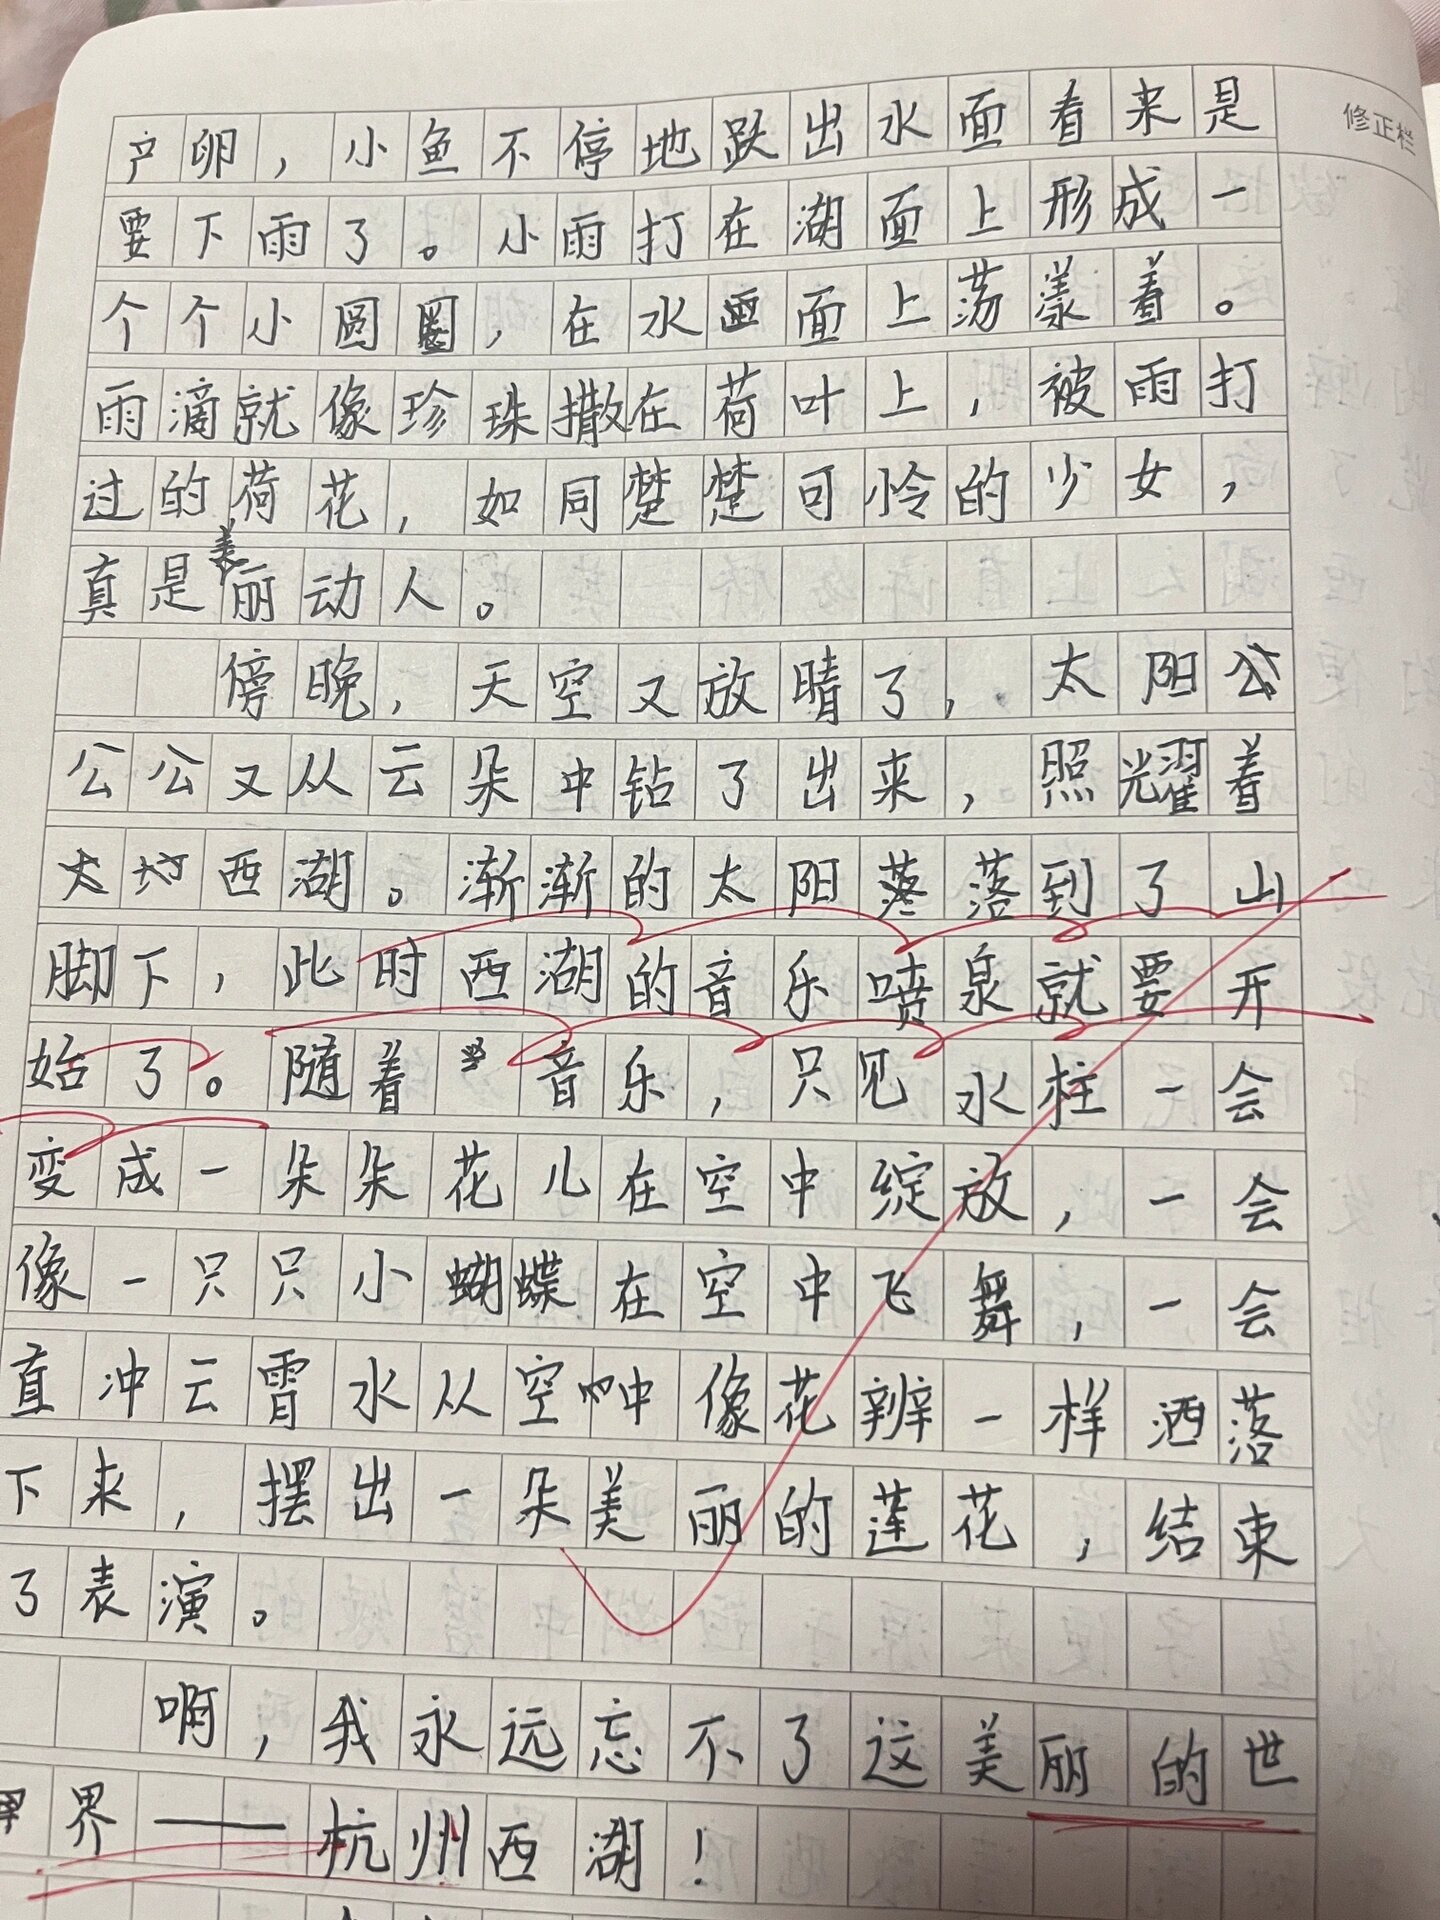 修正栏
产卵，小鱼不停地跃出水面看来是
要下雨了。小雨打在湖面上形成一
个个小圆圈，在水面上荡漾着。
雨滴就像珍珠撒在荷叶上，被雨打
过的荷花，如同楚楚可怜的少女，
真是美丽动人。
傍晚，天空又放晴了，太阳
公公又从云朵中钻了出来，照耀着
西湖。渐渐的太阳落落到了山
脚下，此时西湖的音乐喷泉就要开
始了。随着音乐，只见水柱一会
变成一朵朵花儿在空中绽放，一会
像一只只小蝴蝶在空中飞舞，一会
直冲云霄水从空中像花辨一样洒落
下来，摆出一朵美丽的莲花，结束
了表演。
啊，我永远忘不了这美丽的世
界——杭州西湖！